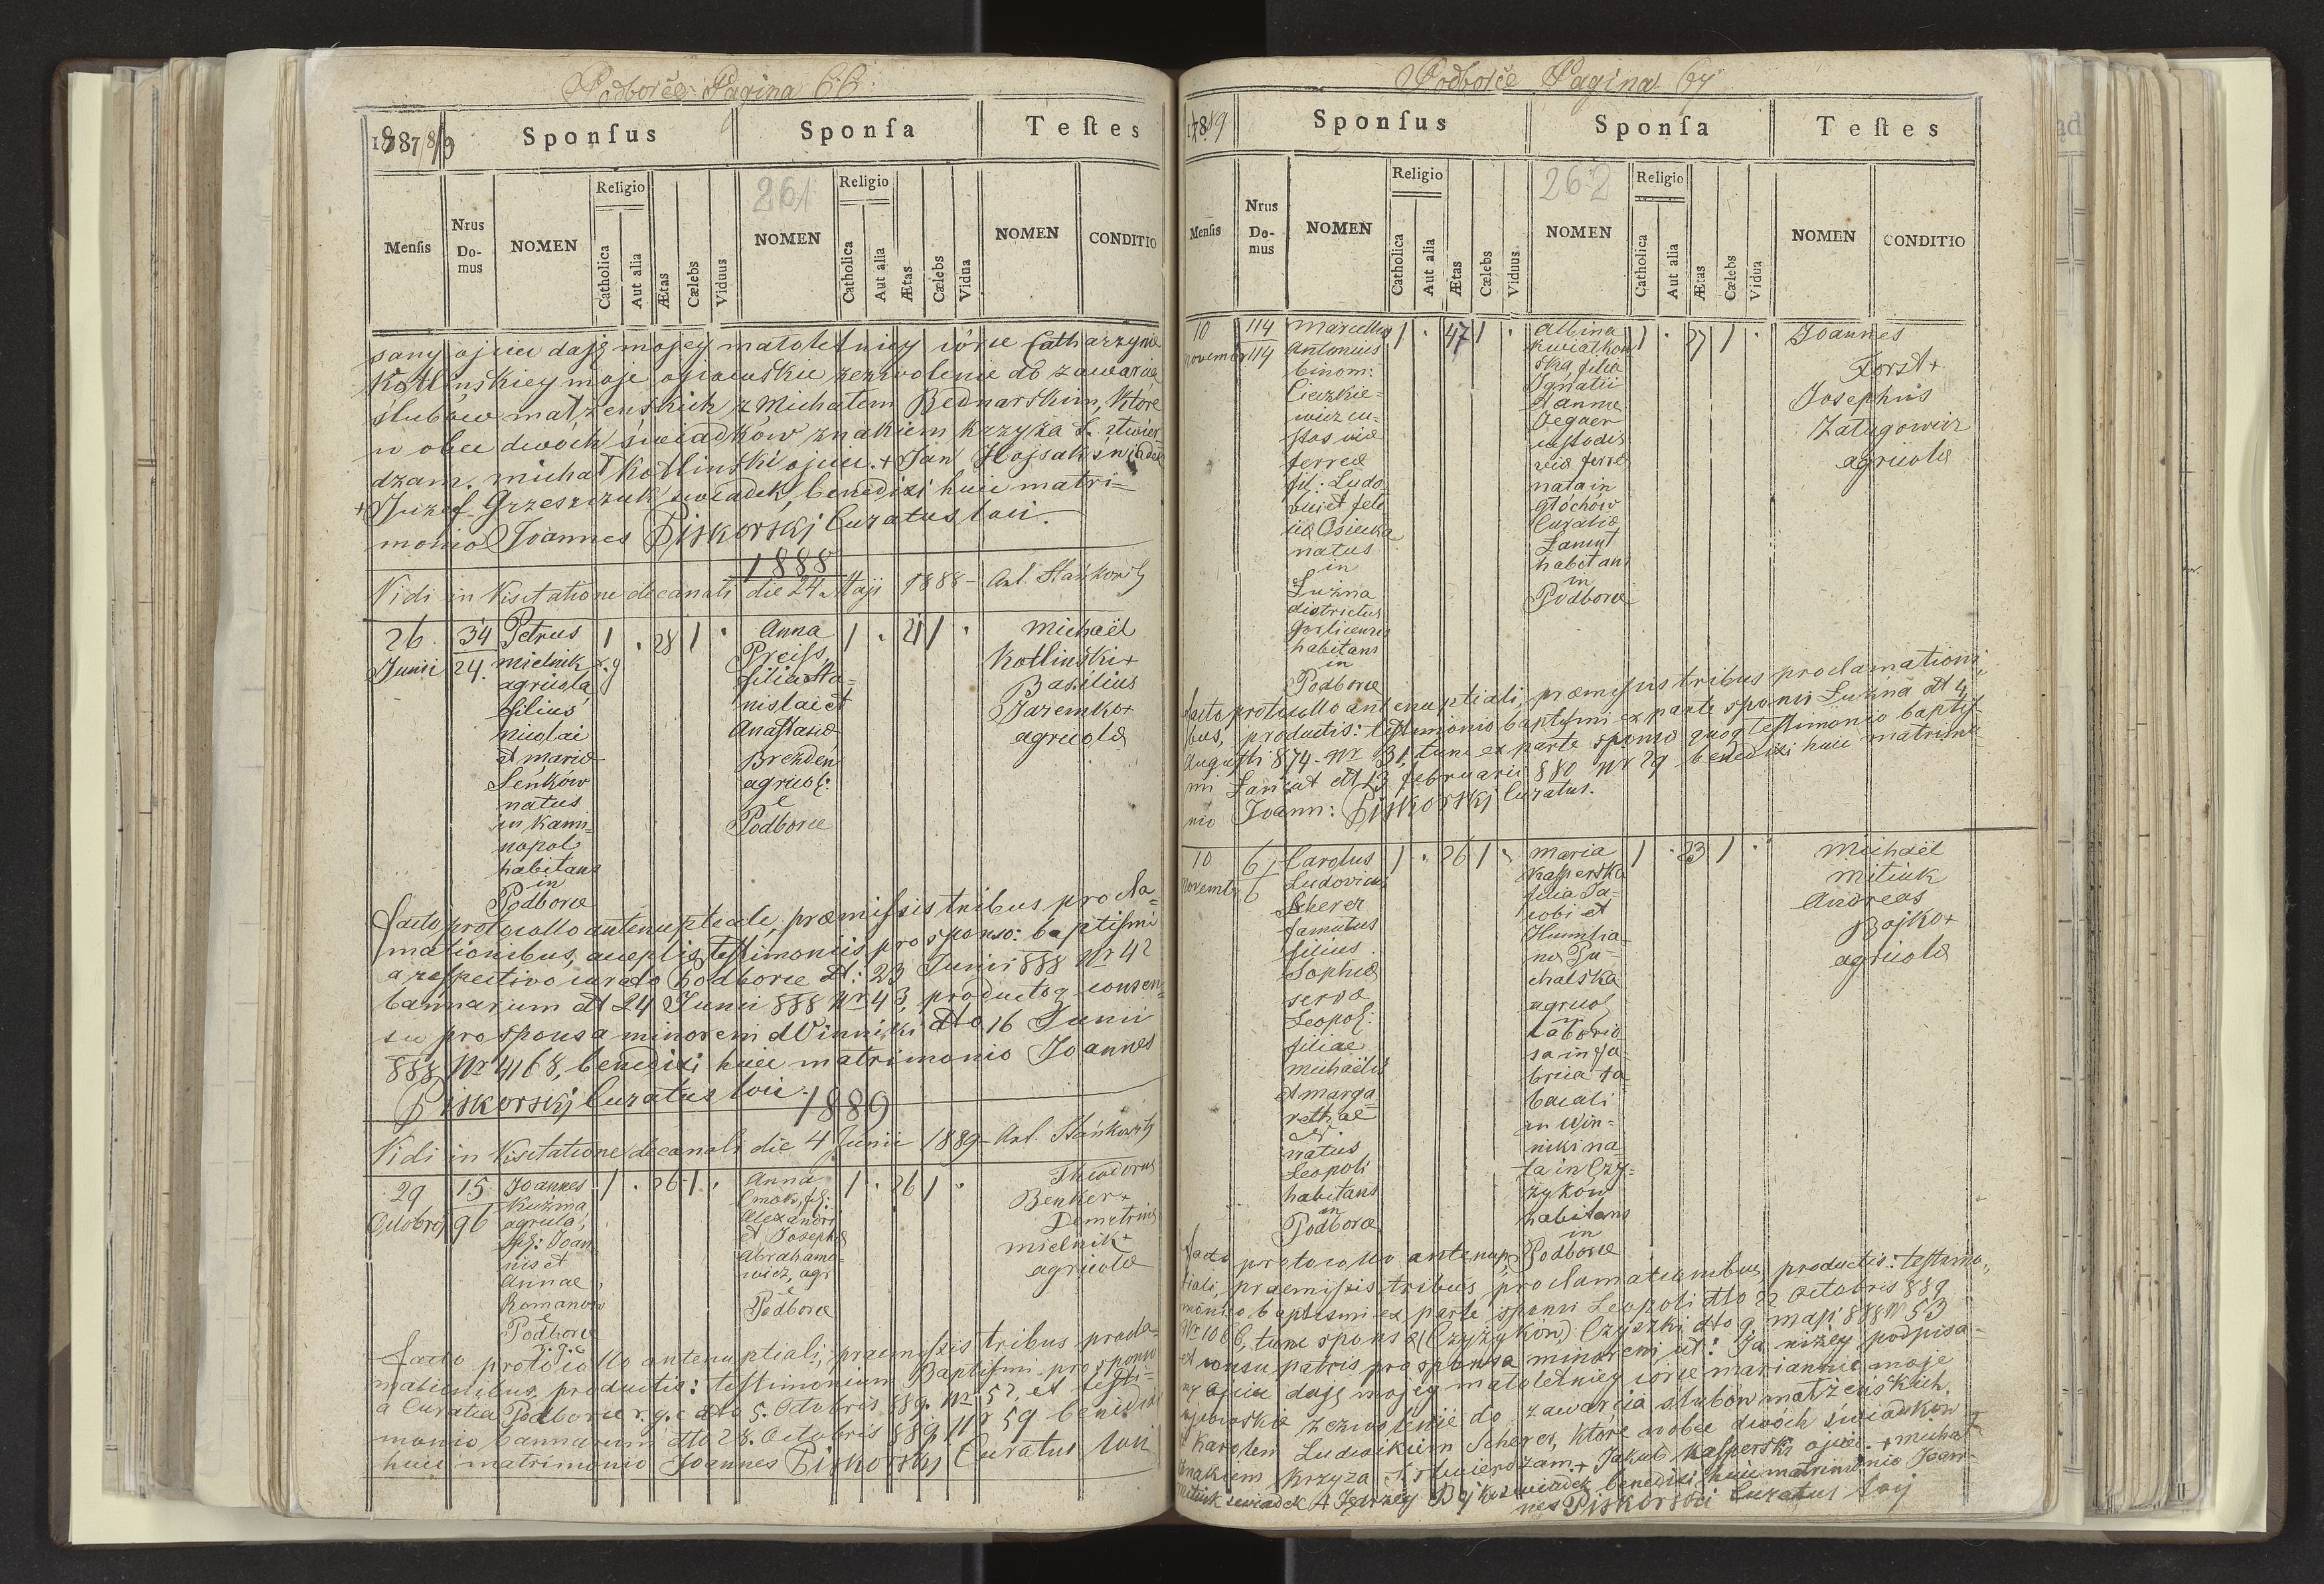 Podborce Pagina 66
1887/8/9
Sponſus
Sponſa
Teſtes
Menſis
Nrus Do-mus
NOMEN
Religio
Catholica
Aut alia
Ætas
Cælebs
Viduus
261
NOMEN
Religio
Catholica
Aut alia
Ætas
Cælebs
Vidua
NOMEN
CONDITIO
sany ojciec daję mojey małoletniey córce Catharzynie
Kotlinskiey moje ojcowskie zezwolenie do zawarcia
ślubów małżeńskich z Michałem Bednarskim, które
w obec dwóch świadków znakiem krzyża S. stwier-
dzam. Michał Kotlinski ojciec. + Jan Hojsak świadek
+ Józef Grzeszczuk świadek, benedixi huic matri-
monio Joannes Piskorskj Curatus loci.
1888
Vidi in Visitatione decanali die 24 Maji 1888 - Ant. Stańkowski
26
Junii
34
24.
Petrus
mielnik r. g
agricola,
filius
nicolai
et mariæ
Senków
natus
in Kami-
nopol
habitans
in
Podborce
1 . 28 1 .
Anna
Preiss,
filia Sta-
nislai et
Anastasiæ
Brehden
agricol:
e
Podborce
1 . 21 1 .
Michaël
Kotlinski +
Basilius
Jaremko +
agricolæ
facto protocollo antenuptiale, præmissis tribus procla-
mationibus, acceptis testimoniis pro sponso: baptismi
a respectivo curato Podborce dt: 23 Junii 888 Nr 42
bannarum dt 24 Junii 888 Nr 43, productoq consen-
su pro sponsa minoreni d Winniki dto 16 Junii
888 Nr 4168, benedixi huic matrimonio Joannes
Piskorskj Curatus loci.
1889
Vidi in Visitatione decanali die 4 Junii 1889 - Ant. Stańkowski
29
Octobris
15
96
Joannes
Kuźma,
agricola,
fil: Joan-
nis et
Annae
Romanów
e
Podborce
r. g. c
1 . 26 1 .
Anna
Cmok, fil:
Alexandri
et Josephæ
Abrahamo-
wicz, agr
e
Podborce
1 . 26 1 .
Theodorus
Benker +
Demetrius
mielnik +
agricolæ
facto protocollo antenuptiali, praemissis tribus procla-
mationibus, productis: testimonium Baptismi pro sponso
a Curatia Podborce r. g. c dto 5. Octobris 889. Nr 52, et testi-
monio bannarum dto 28. Octobris 889 Nr 59 benedixi
huic matrimonio Joannes Piskorskj Curatus loci
Podborce Pagina 67
1889
Sponſus
Sponſa
Teſtes
Menſis
Nrus Do-mus
NOMEN
Religio
Catholica
Aut alia
Ætas
Cælebs
Viduus
262
NOMEN
Religio
Catholica
Aut alia
Ætas
Cælebs
Vidua
NOMEN
CONDITIO
10
novembr
114
114
Marcellus
Antonius
binom:
Cieczkie-
wicz cu-
stos viæ
ferreæ
fil: Ludo-
vici et feli-
ciæ Osiecka
natus
in
Łużna
districtus
Gorlicensis
habitans
in
Podborce
1 . 47 1 .
Albina
Kwiatkow-
ska filia
Ignatii
et annæ
Vegner
custodis
viæ ferreæ
nata in
Głóchów
Curatiæ
Łancut
habitans
in
Podborce
1 . 27 1 .
Joannes
Forst +
Josephus
Załugowicz
agricolæ
facto protocollo antenuptiali, præmissis tribus proclamationi-
bus, productis: testimonio baptismi ex parte sponsi Łużna dt 4
Augusti 874 - Nr 31, tunc ex parte sponsæ quoq testimonio baptis-
mi Łańcut dt 13 februarii 880 Nr 29 benedixi huic matrimo-
nio Joann: Piskorskj Curatus.
10
Novemb
6
6
Carolus
Ludovicus
Scherer
famulus
filius
Sophiæ
servæ
Leopol:
filiae
michaëlis
et marga-
rethae
N.
natus
Leopoli
habitans
in
Podborce
1 . 26 1 .
Maria
Kasperska
filia Ja-
cobi et
Humilia-
næ Pu-
chalska
agricol
laborio-
sa in fa-
brica ta-
bacali
in Win-
niki na-
ta in Czy-
żyków
habitans
in
Podborce
1 . 23 1 .
Michaël
Mitiuk
Andreas
Bojko +
agricolæ
facto protocollo antenup-
tiali, praemissis tribus proclamationibus, productis: testimo-
monio baptismi ex parte sponsi Leopoli dto 22 Octobris 889
Nr 1066, tunc sponsæ (Czyżyków) Czyszki dto 9 maji 888 Nr 53
et consensu patris pro sponsa minoreni dt: Ja niżey podpisa-
ny Ojciec daję mojey małoletniey córce mariannie moje
ojcowskie zezwolenie do zawarcia ślubów małżeńskich
z Karolem Ludwikiem Scherer, które wobec dwóch świadków
znakiem krzyża S. stwierdzam. + Jakub Kasperski ojciec. + michał
Mitiuk świadek + Jędrzey Bojko świadek benedixi huic matrimonio Joan-
nes Piskorski Curatus loci